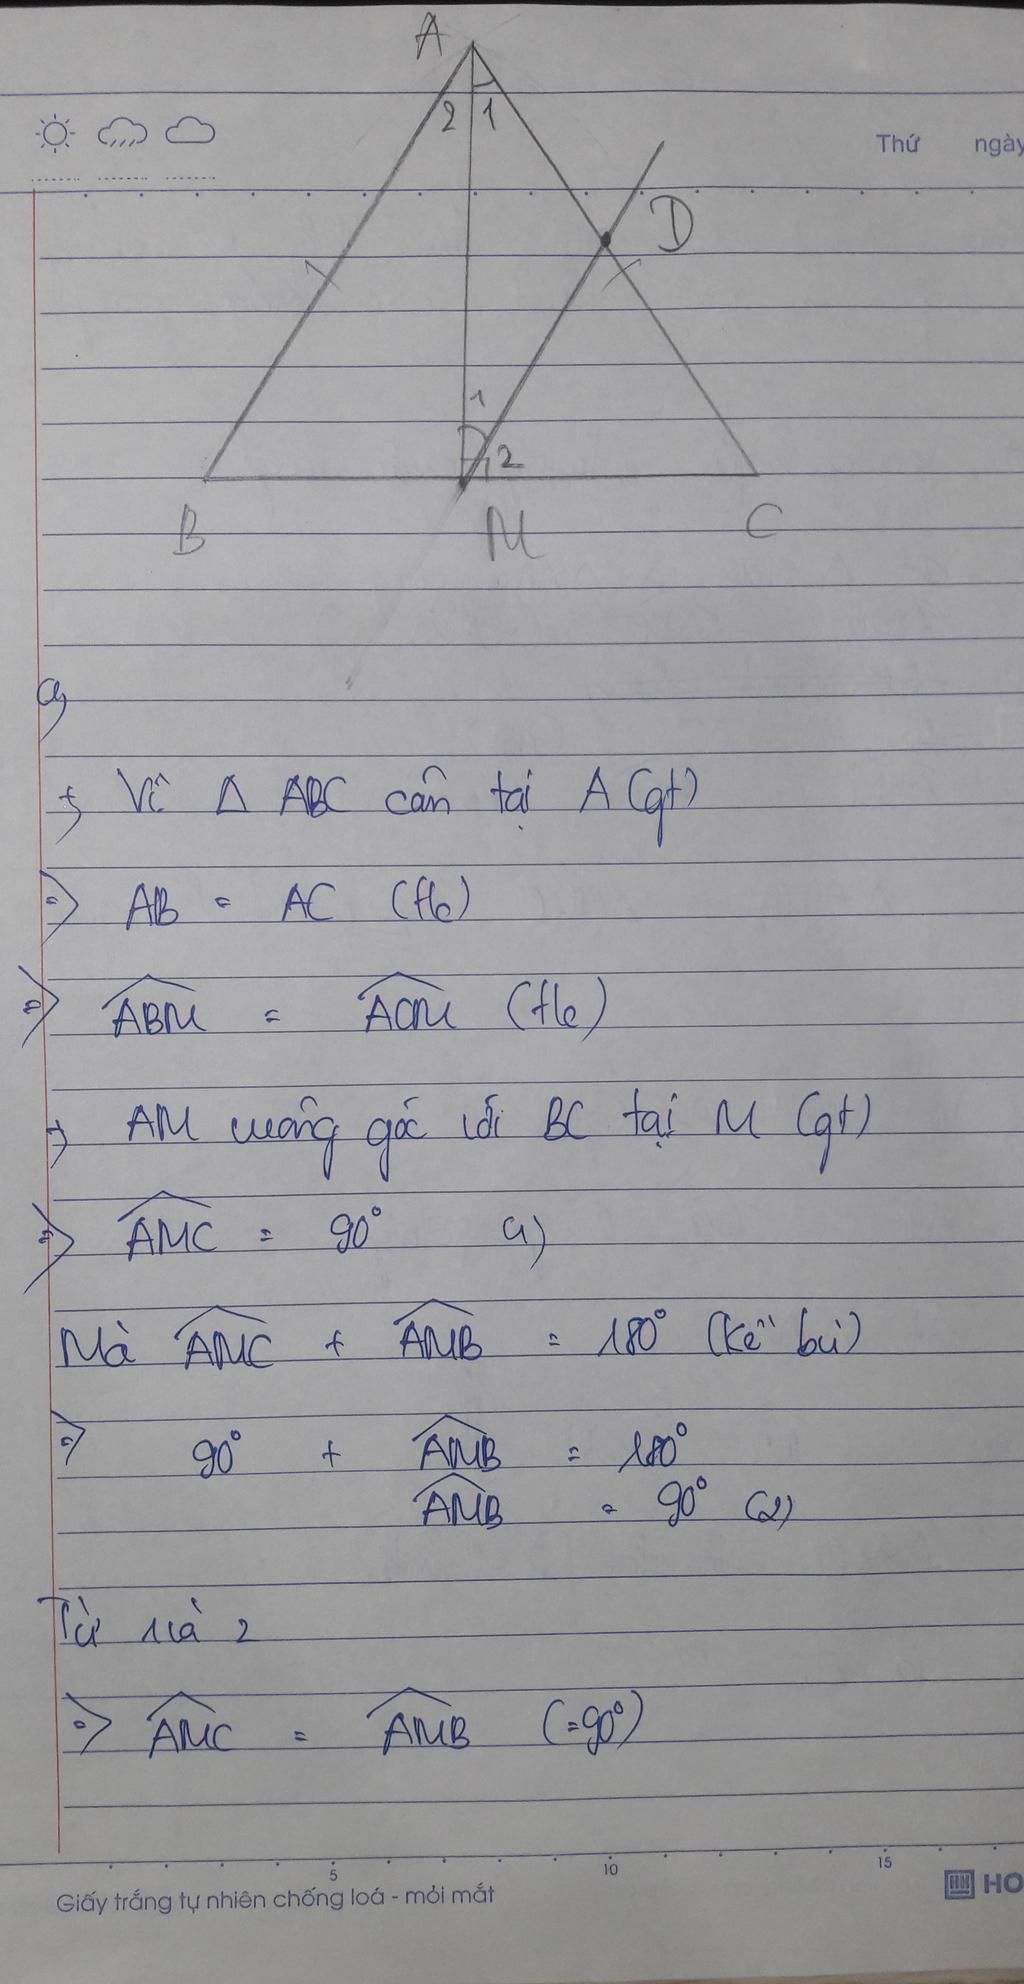 A
2 1
Thứ ngày
D
1
2
B M C
a)
+) Vì Δ ABC cân tại A (gt)
=> AB = AC (t/c)
=> ABM = ACM (t/c)
+) AM vuông góc với BC tại M (gt)
=> AMC = 90° (1)
Mà AMC + AMB = 180° (kề bù)
=> 90° + AMB = 180°
AMB = 90° (2)
Từ 1 và 2
=> AMC = AMB (=90°)
5 10 15
Giấy trắng tự nhiên chống loá - mỏi mắt
HO